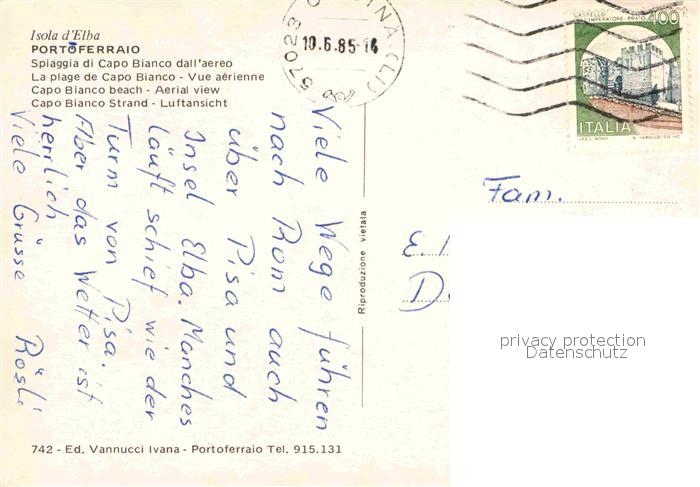 Isola d'Elba
PORTOFERRAIO
Spiaggia di Capo Bianco dall'aereo
La plage de Capo Bianco - Vue aérienne
Capo Bianco beach - Aerial view
Capo Bianco Strand - Luftansicht
57023 CECINA (LI)
10.6.85-14
CASTELLO
DELL'IMPERATORE - PRATO
400
ITALIA
I.P.Z.S. ROMA
Viele Wege führen
nach Rom auch
über Pisa und
Insel Elba. Manches
läuft schief wie der
Turm von Pisa.
Aber das Wetter ist
herrlich
Viele Grüsse Rösli
Riproduzione vietata
Fam.
E.
D
privacy protection
Datenschutz
742 - Ed. Vannucci Ivana - Portoferraio Tel. 915.131